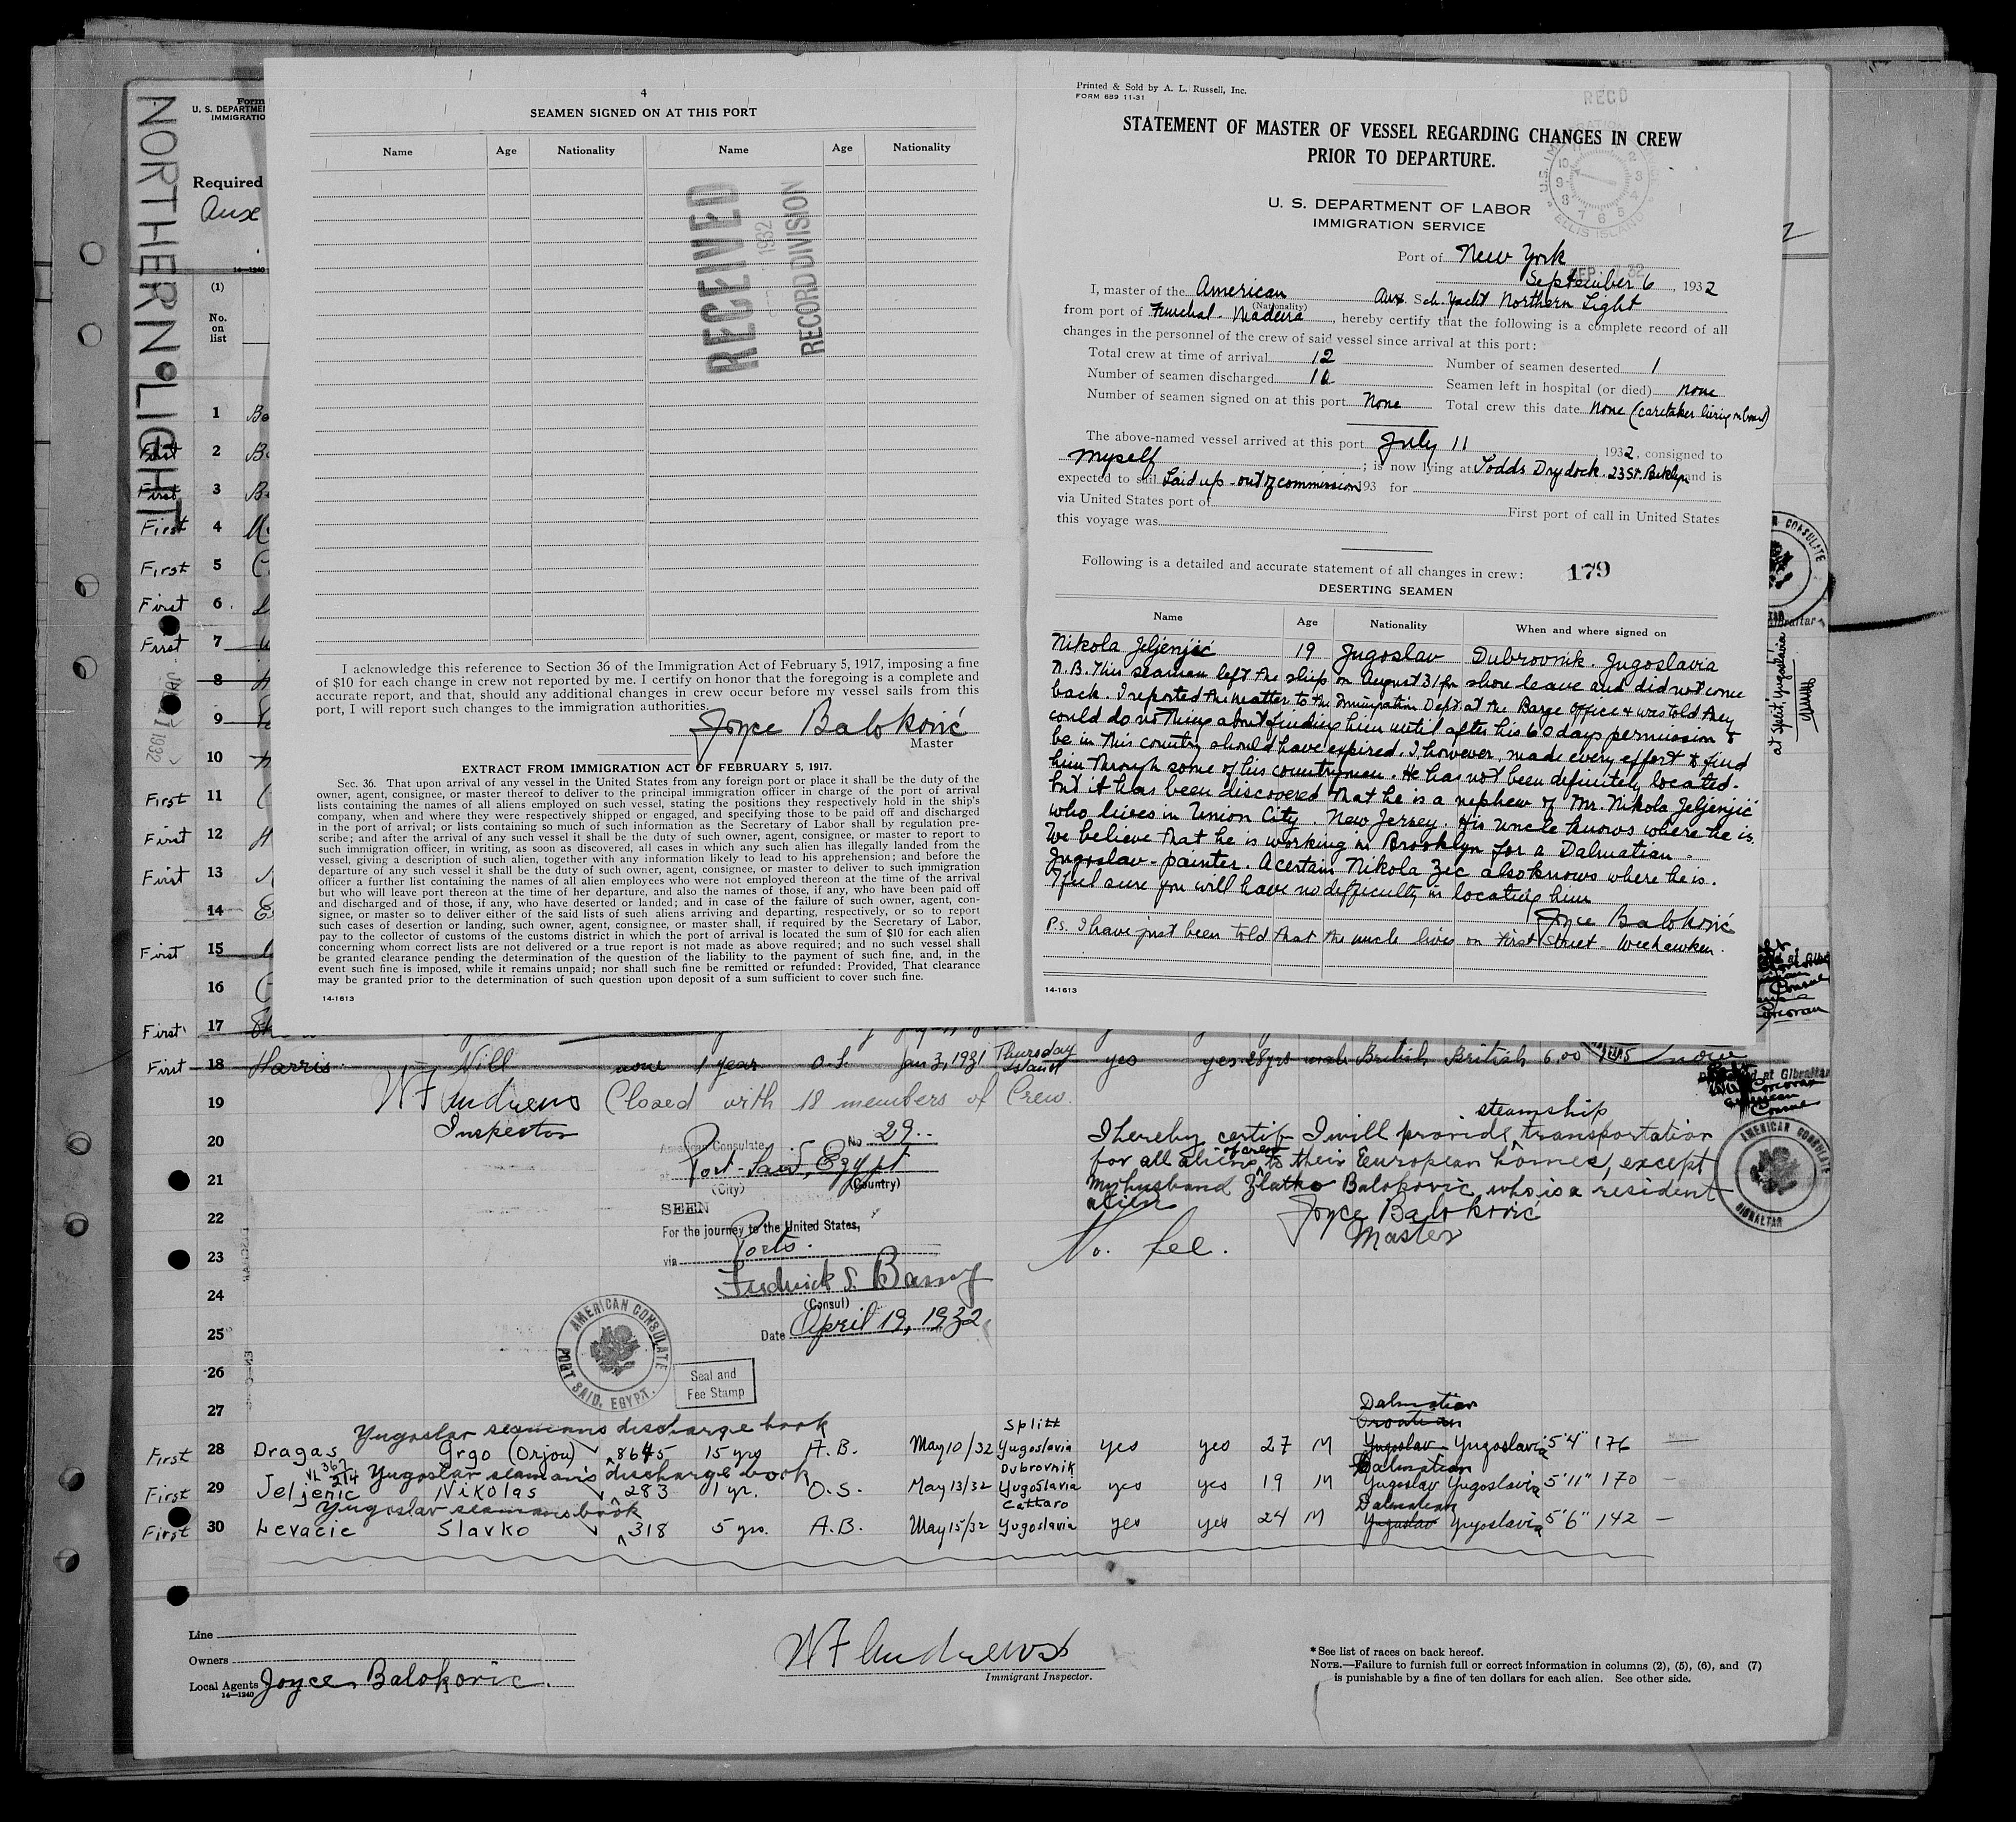 NORTHERN LIGHT
Form
U. S. DEPARTME
IMMIGRATIO
Required
Aux
14—1240
(1)
No.
on
list
1 Ba
First 2 B
First 3 B
First 4
First 5 C
First 6
First 7
8
9
10
First 11
First 12 H
First 13
14
First 15
16
First 17
1 1932
4
SEAMEN SIGNED ON AT THIS PORT
Name Age Nationality Name Age Nationality
RECEIVED
1932
RECORD DIVISION
I acknowledge this reference to Section 36 of the Immigration Act of February 5, 1917, imposing a fine
of $10 for each change in crew not reported by me. I certify on honor that the foregoing is a complete and
accurate report, and that, should any additional changes in crew occur before my vessel sails from this
port, I will report such changes to the immigration authorities.
Joyce Baloković
Master
EXTRACT FROM IMMIGRATION ACT OF FEBRUARY 5, 1917.
Sec. 36. That upon arrival of any vessel in the United States from any foreign port or place it shall be the duty of the
owner, agent, consignee, or master thereof to deliver to the principal immigration officer in charge of the port of arrival
lists containing the names of all aliens employed on such vessel, stating the positions they respectively hold in the ship's
company, when and where they were respectively shipped or engaged, and specifying those to be paid off and discharged
in the port of arrival; or lists containing so much of such information as the Secretary of Labor shall by regulation pre-
scribe; and after the arrival of any such vessel it shall be the duty of such owner, agent, consignee, or master to report to
such immigration officer, in writing, as soon as discovered, all cases in which any such alien has illegally landed from the
vessel, giving a description of such alien, together with any information likely to lead to his apprehension; and before the
departure of any such vessel it shall be the duty of such owner, agent, consignee, or master to deliver to such immigration
officer a further list containing the names of all alien employees who were not employed thereon at the time of the arrival
but who will leave port thereon at the time of her departure, and also the names of those, if any, who have been paid off
and discharged and of those, if any, who have deserted or landed; and in case of the failure of such owner, agent, con-
signee, or master so to deliver either of the said lists of such aliens arriving and departing, respectively, or so to report
such cases of desertion or landing, such owner, agent, consignee, or master shall, if required by the Secretary of Labor,
pay to the collector of customs of the customs district in which the port of arrival is located the sum of $10 for each alien
concerning whom correct lists are not delivered or a true report is not made as above required; and no such vessel shall
be granted clearance pending the determination of the question of the liability to the payment of such fine, and, in the
event such fine is imposed, while it remains unpaid; nor shall such fine be remitted or refunded: Provided, That clearance
may be granted prior to the determination of such question upon deposit of a sum sufficient to cover such fine.
14-1613
Printed & Sold by A. L. Russell, Inc.
FORM 689 11-31
RECD
STATEMENT OF MASTER OF VESSEL REGARDING CHANGES IN CREW
PRIOR TO DEPARTURE.
ELLIS ISLAND
U. S. DEPARTMENT OF LABOR
IMMIGRATION SERVICE
Port of New York
SEP 32
September 6, 1932
I, master of the American Aux. Sch. Yacht Northern Light
(Nationality)
from port of Funchal - Madeira, hereby certify that the following is a complete record of all
changes in the personnel of the crew of said vessel since arrival at this port:
Total crew at time of arrival 12 Number of seamen deserted 1
Number of seamen discharged 10 Seamen left in hospital (or died) none
Number of seamen signed on at this port None Total crew this date None (caretaker living on board)
The above-named vessel arrived at this port July 11 1932, consigned to
myself; is now lying at Todds Drydock. 23 St. Bklyn and is
expected to sail Laid up - out of commission 193 for
via United States port of First port of call in United States
this voyage was
Following is a detailed and accurate statement of all changes in crew: 179
DESERTING SEAMEN
Name Age Nationality When and where signed on
Nikola Jeljenjić 19 Jugoslav Dubrovnik. Jugoslavia
N.B. This seaman left the ship on August 31 for shore leave and did not come
back. I reported the matter to the Immigration Dept. at the Barge Office & was told they
could do nothing about finding him until after his 60 days permission to
be in this country should have expired. I however, made every effort to find
him through some of his countrymen. He has not been definitely located.
but it has been discovered that he is a nephew of Mr. Nikola Jeljenjić
who lives in Union City. New Jersey. His uncle knows where he is.
We believe that he is working in Brooklyn for a Dalmatian -
Jugoslav - painter. A certain Nikola Zec also knows where he is.
I feel sure you will have no difficulty in locating him
Joyce Baloković
P.S. I have just been told that the uncle lives on First Street - Weehawken.
14-1613
CONSULATE
Gibraltar
at Split, Yugoslavia
Consul
Corcoran
First 18 Harris Will none 1 year O.S. Jan 3, 1931 Thursday Island yes yes 28 yrs male British British 6.00 145 none
at Gibraltar
Corcoran
American
Consul
19 W F Andrews Closed with 18 members of Crew.
Inspector
20
21
22
23
24
25
26
27
American Consulate No 29
at Port-Said, Egypt
(City) (Country)
SEEN
For the journey to the United States,
via Ports.
Fredrick S. Barny
(Consul)
Date April 19, 1932
AMERICAN CONSULATE
PORT SAID, EGYPT.
Seal and
Fee Stamp
steamship
I hereby certify I will provide transportation
of crew
for all aliens to their European homes, except
my husband Zlatko Balokovic, who is a resident
alien
Joyce Baloković
Master
No. fee.
AMERICAN CONSULATE
GIBRALTAR
Yugoslav seamans discharge book Splitt Dalmatian Croatian
First 28 Dragas Grgo (Orjou) 8645 15 yrs A.B. May 10/32 Yugoslavia yes yes 27 M Yugoslav Yugoslavia 5'4" 176 —
VL 367/214 Yugoslav seaman's discharge book Dubrovnik Dalmatian
First 29 Jeljenic Nikolas 283 1 yr. O.S. May 13/32 Yugoslavia yes yes 19 M Yugoslav Yugoslavia 5'11" 170 —
Yugoslav seamans book Cattaro Dalmatian
First 30 Levacic Slavko 318 5 yrs. A.B. May 15/32 Yugoslavia yes yes 24 M Yugoslav Yugoslavia 5'6" 142 —
Line
Owners
Local Agents Joyce Balokovic.
14—1240
W F Andrews
Immigrant Inspector.
*See list of races on back hereof.
NOTE.—Failure to furnish full or correct information in columns (2), (5), (6), and (7)
is punishable by a fine of ten dollars for each alien. See other side.